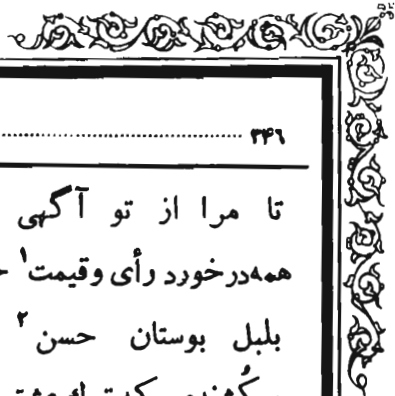 ۳۴۶
تا مرا از تو آگهی
همه‌درخورد رأی وقیمت۱
بلبل بوستان حسن۲